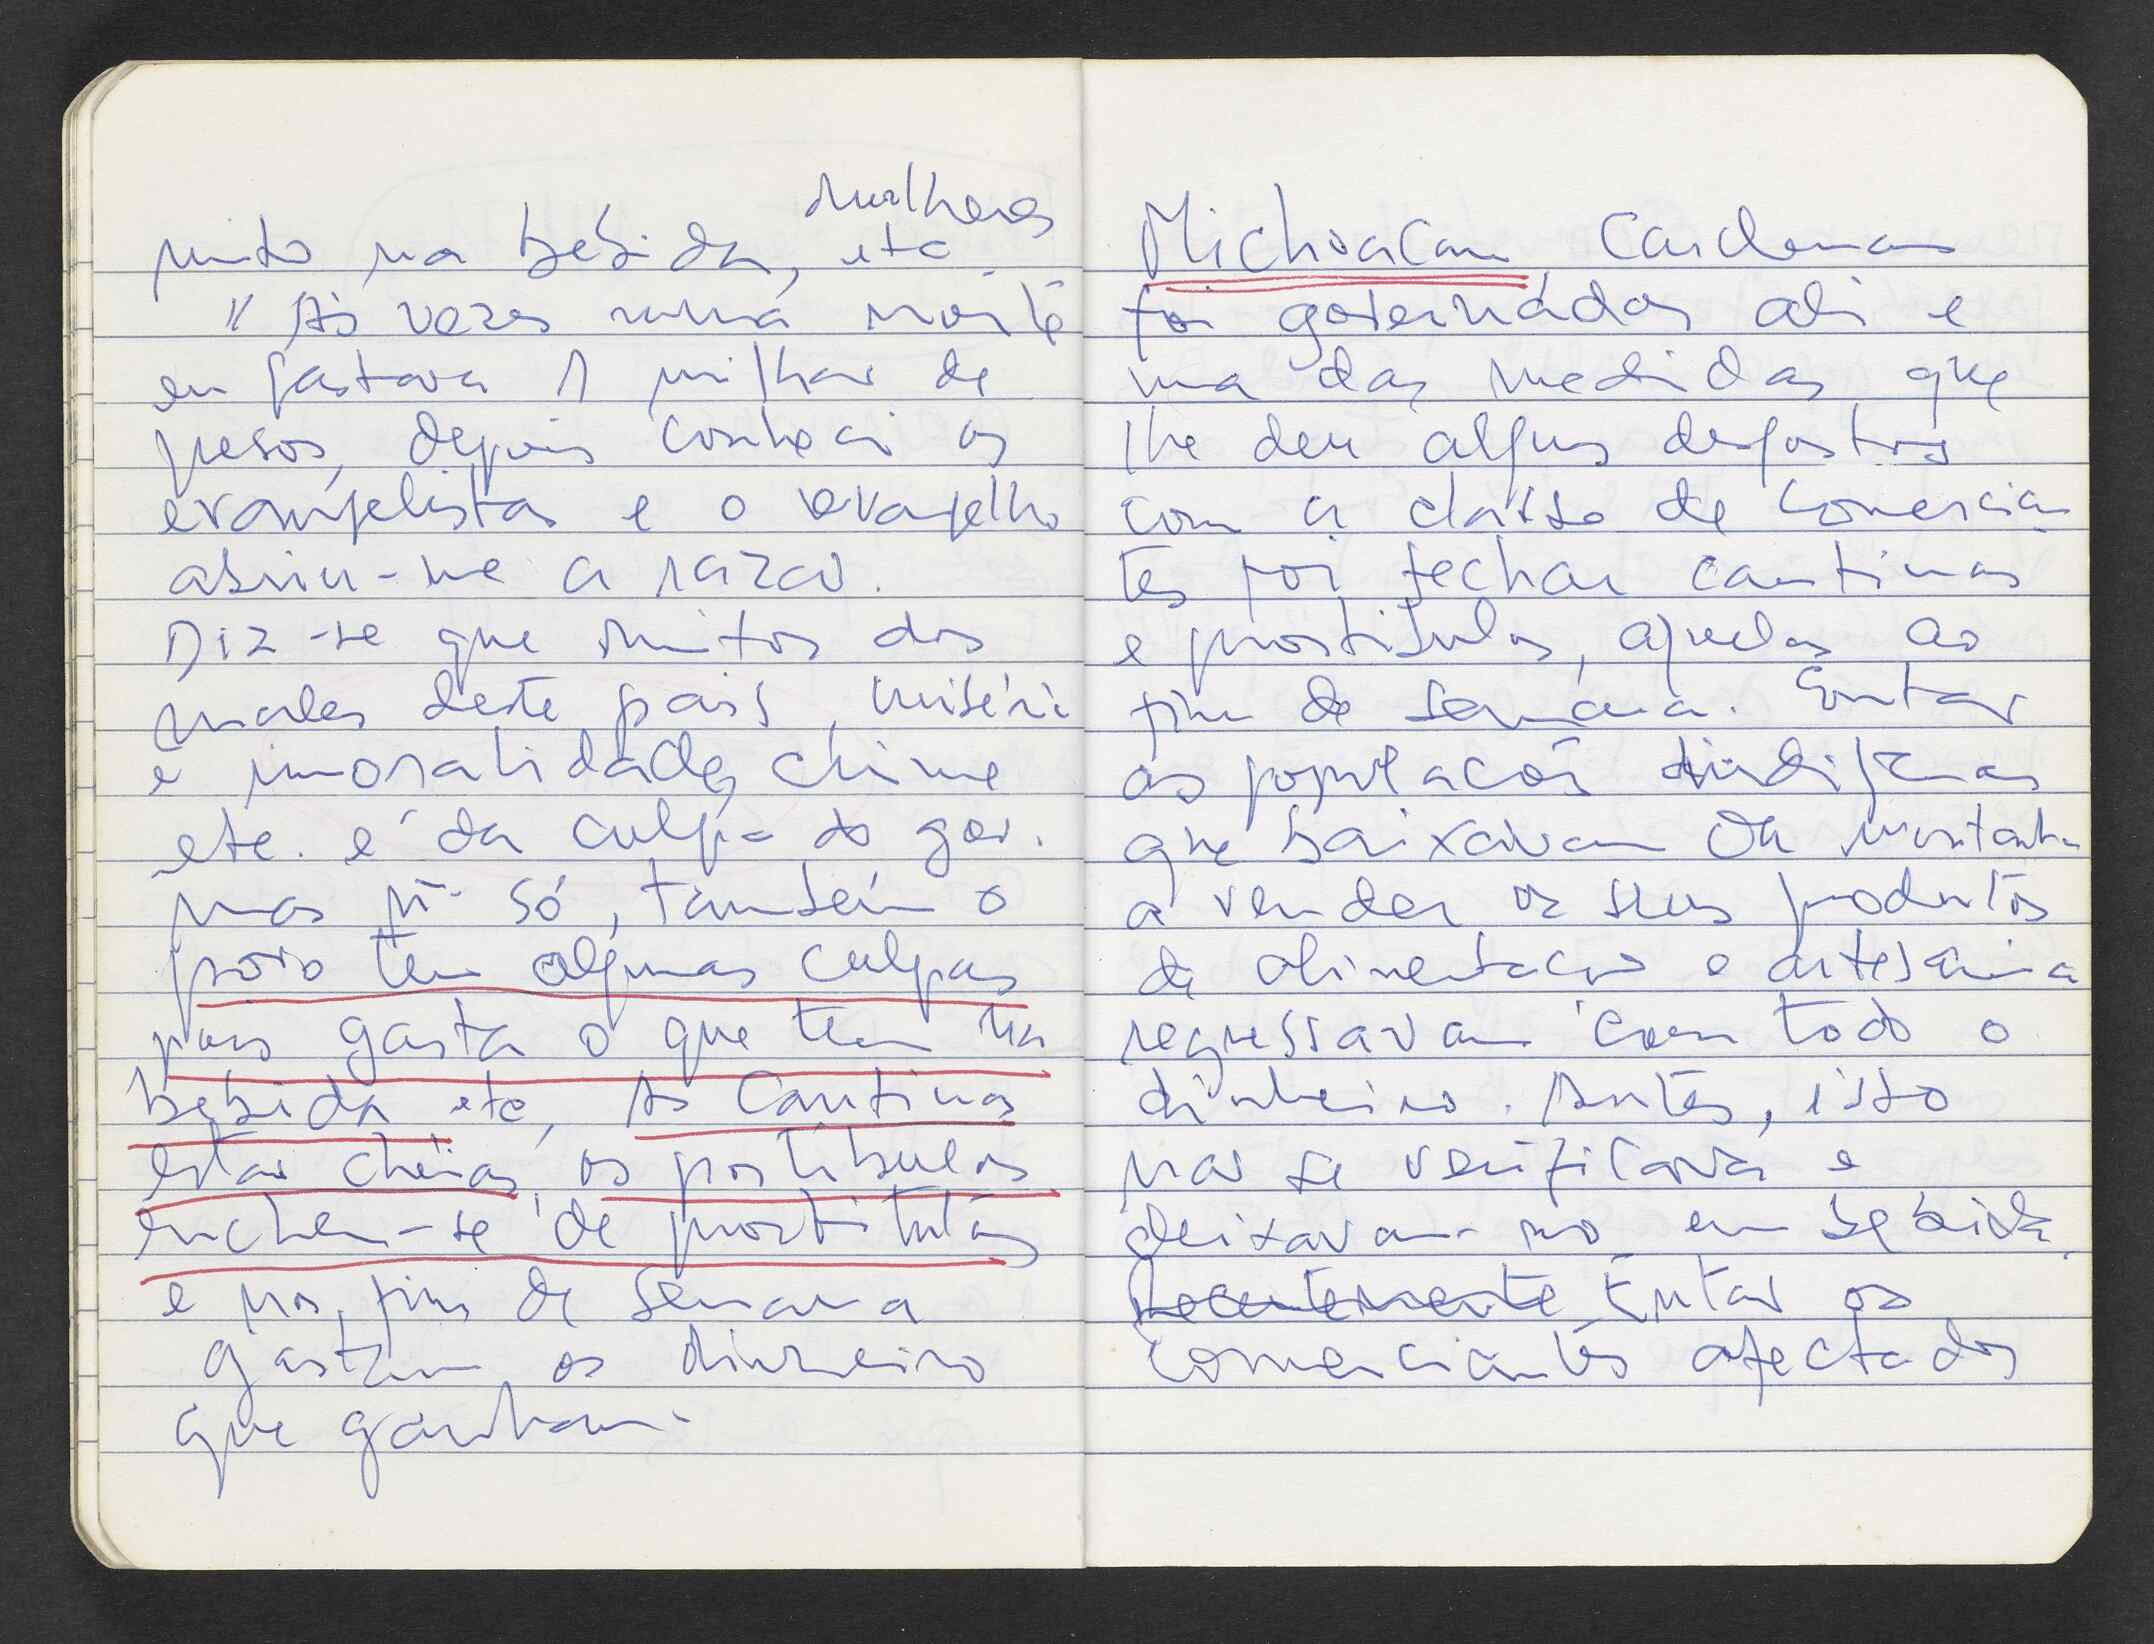 mulheres
muito na bebida, etc.
" Às vezes numa noite
eu gastava 1 milhar de
pesos, depois conheci os
evangelistas e o evangelho
abriu-me a razão.
Diz-se que muitos dos
males deste pais, miséri
e imoralidade, crime
etc. é da culpa do gov.
mas ñ só, também o
povo tem algumas culpas
pois gasta o que tem na
bebida etc, As Cantinas
estão cheias, os postibulos
enchem-se de prostitutas
e nos fins de semana
gastam os dinheiro
que ganham.
Michoacan Cardenas
foi governador ali e
uma das medidas que
lhe deu alguns desgostos
com a classe de comercian
tes foi fechar cantinas
e prostibulos, aquelas ao
fim de semana. Então
as populacões indigenas
que baixavam da montanha
a vender os seus produtos
de alimentação e artesania
regressavam com todo o
dinheiro. Antes, isso
não se verificava e
deixavam-no em bebida.
Recentemente Então os
comerciantes afectados